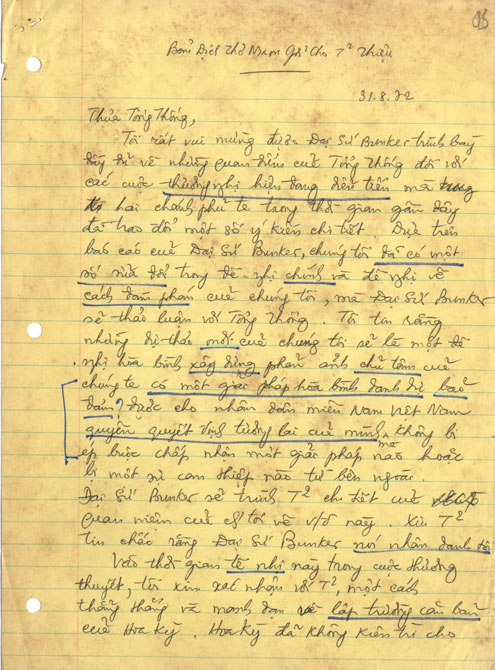 Bản Dịch Thơ Nixon Gởi Cho T² Thiệu
31.8.72
Thưa Tổng Thống,
Tôi rất vui mừng được Đại Sứ Bunker trình bày
đầy đủ về những quan điểm của Tổng Thống đối với
các cuộc thương nghị hiện đang diễn tiến mà trong
hai chánh phủ ta trong thời gian gần đây
đã trao đổi một số ý kiến chi tiết. Dựa trên
báo cáo của Đại Sứ Bunker, chúng tôi đã có một
số sửa đổi trong đề nghị chính và đề nghị về
cách đàm phán của chúng tôi, mà Đại Sứ Bunker
sẽ thảo luận với Tổng Thống. Tôi tin rằng
những dự thảo mới của chúng tôi sẽ là một đề
nghị hòa bình xây dựng phản ảnh chủ tâm của
chúng ta có một giải pháp hòa bình danh dự bảo
đảm? được cho nhân dân miền Nam Việt Nam
quyền quyết định tương lai của mình mà không bị
ép buộc chấp nhận một giải pháp nào hoặc
bị một sự can thiệp nào từ bên ngoài.
Đại Sứ Bunker sẽ trình T² chi tiết của
quan niệm của ch tôi về v/đ này. Xin T²
tin chắc rằng Đại Sứ Bunker nói nhân danh tôi
Vào thời gian tế nhị này trong cuộc thương
thuyết, tôi xin xác nhận với T², một cách
thẳng thắng và mạnh dạn về lập trường căn bản
của Hoa Kỳ. Hoa Kỳ đã không kiên trì cho